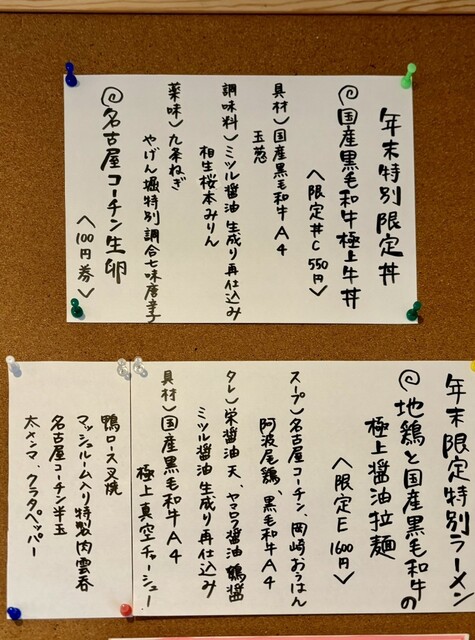 年末特別限定丼
◎国産黒毛和牛極上牛丼
〈限定丼C 550円〉
具材)国産黒毛和牛A4
玉葱
調味料)ミツル醤油 生成り再仕込み
相生桜本みりん
薬味)九条ねぎ
やげん堀特別調合七味唐辛子
◎名古屋コーチン生卵
〈100円券〉
年末限定特別ラーメン
◎地鶏と国産黒毛和牛の
極上醤油拉麺
〈限定E 1600円〉
スープ)名古屋コーチン、岡崎おうはん
阿波尾鶏、黒毛和牛A4
タレ)栄醤油 天、ヤマロク醤油 鶴醤
ミツル醤油 生成り再仕込み
具材)国産黒毛和牛A4
極上真空チャーシュー
鴨ロース叉焼
マッシュルーム入り特製肉雲呑
名古屋コーチン半玉
太メンマ、クラタペッパー